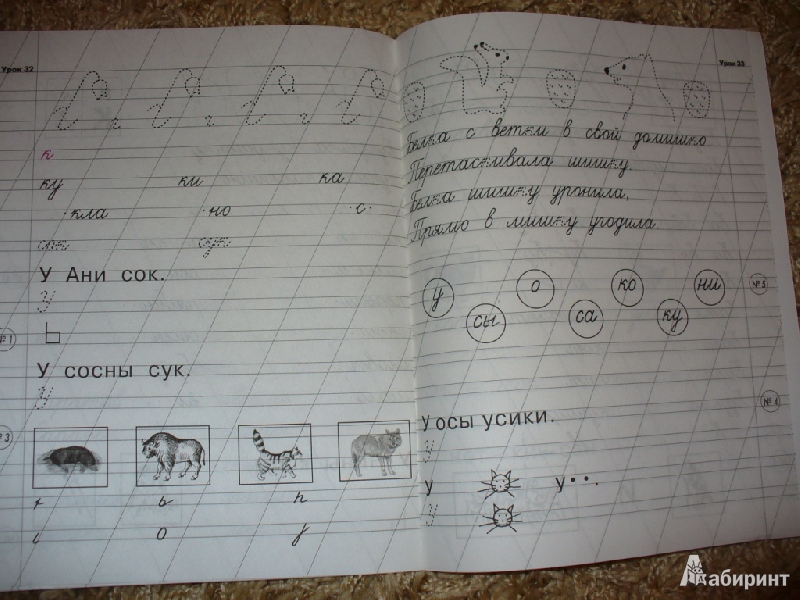 Урок 32
к
ку ки ка
кла но с
сок сук
У Ани сок.
У
№1
У сосны сук.
У
№3
Урок 33
Белка с ветки в свой домишко
Перетаскивала шишку.
Белка шишку уронила,
Прямо в мишку угодила.
у о ко ни
сы са ку
№5
№4
У осы усики.
У
У у
У
Лабиринт